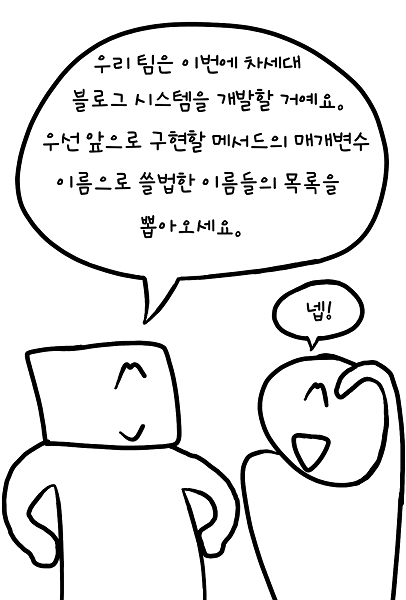 우리 팀은 이번에 차세대
블로그 시스템을 개발할 거예요.
우선 앞으로 구현할 메서드의 매개변수
이름으로 쓸법한 이름들의 목록을
뽑아오세요.
넵!